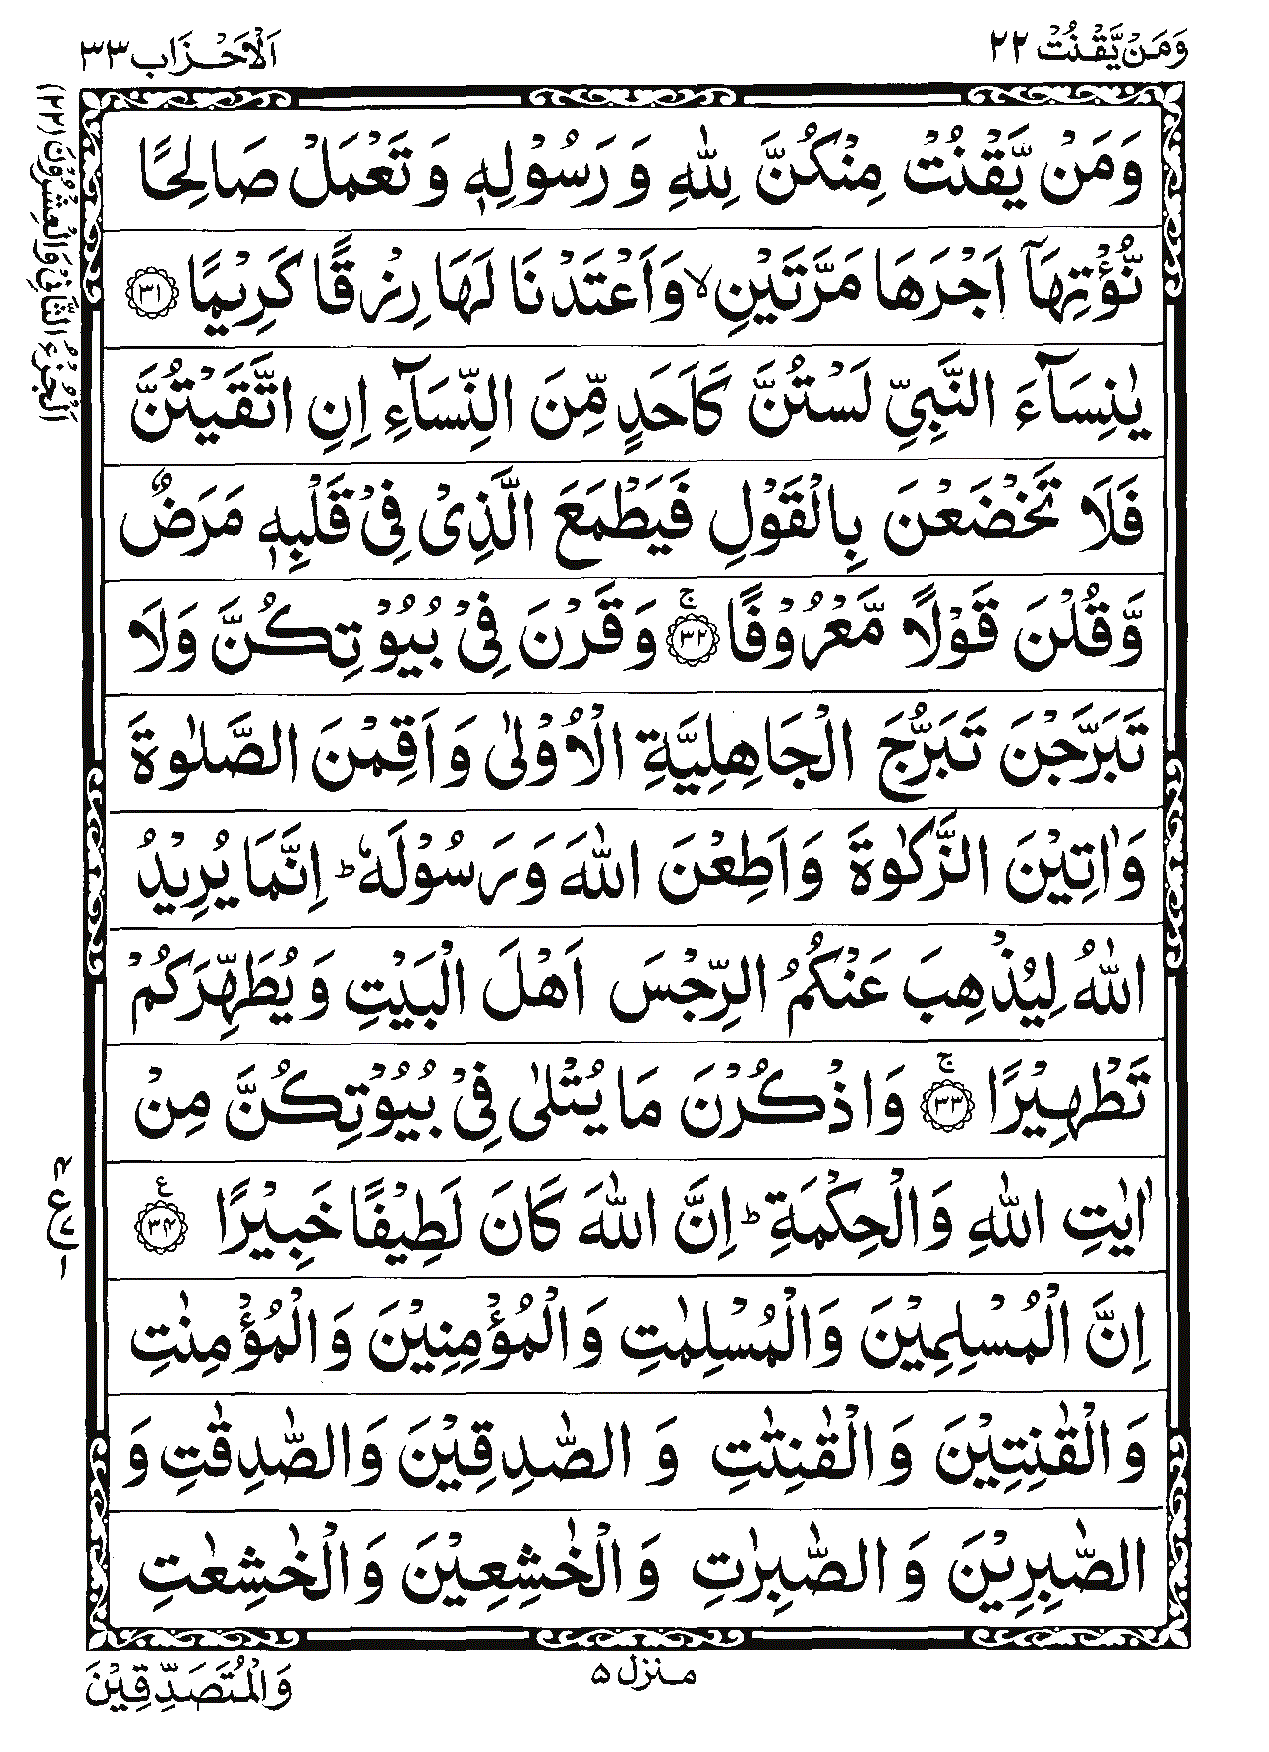 وَمَنْ يَّقْنُتْ ٢٢
اَلْاَحْزَاب ٣٣
اَلْجُزْءُ الثَّانِیْ وَالْعِشْرُوْنَ (٢٢)
وَمَنْ يَّقْنُتْ مِنْكُنَّ لِلّٰهِ وَ رَسُوْلِهٖ وَ تَعْمَلْ صَالِحًا
نُّؤْتِهَاۤ اَجْرَهَا مَرَّتَيْنِ ۙ وَاَعْتَدْنَا لَهَا رِزْقًا كَرِيْمًا ﴿٣١﴾
يٰنِسَآءَ النَّبِيِّ لَسْتُنَّ كَاَحَدٍ مِّنَ النِّسَآءِ اِنِ اتَّقَيْتُنَّ
فَلَا تَخْضَعْنَ بِالْقَوْلِ فَيَطْمَعَ الَّذِیْ فِیْ قَلْبِهٖ مَرَضٌ
وَّقُلْنَ قَوْلًا مَّعْرُوْفًا ﴿٣٢﴾ۚ وَقَرْنَ فِیْ بُيُوْتِكُنَّ وَلَا
تَبَرَّجْنَ تَبَرُّجَ الْجَاهِلِيَّةِ الْاُوْلٰى وَاَقِمْنَ الصَّلٰوةَ
وَاٰتِيْنَ الزَّكٰوةَ وَاَطِعْنَ اللّٰهَ وَرَسُوْلَهٗ ؕ اِنَّمَا يُرِيْدُ
اللّٰهُ لِيُذْهِبَ عَنْكُمُ الرِّجْسَ اَهْلَ الْبَيْتِ وَيُطَهِّرَكُمْ
تَطْهِيْرًا ﴿٣٣﴾ۚ وَاذْكُرْنَ مَا يُتْلٰى فِیْ بُيُوْتِكُنَّ مِنْ
اٰيٰتِ اللّٰهِ وَالْحِكْمَةِ ؕ اِنَّ اللّٰهَ كَانَ لَطِيْفًا خَبِيْرًا ﴿٣٤﴾ ع
اِنَّ الْمُسْلِمِيْنَ وَالْمُسْلِمٰتِ وَالْمُؤْمِنِيْنَ وَالْمُؤْمِنٰتِ
وَالْقٰنِتِيْنَ وَالْقٰنِتٰتِ وَ الصّٰدِقِيْنَ وَالصّٰدِقٰتِ وَ
الصّٰبِرِيْنَ وَ الصّٰبِرٰتِ وَالْخٰشِعِيْنَ وَالْخٰشِعٰتِ
منزل ٥
وَالْمُتَصَدِّقِيْنَ